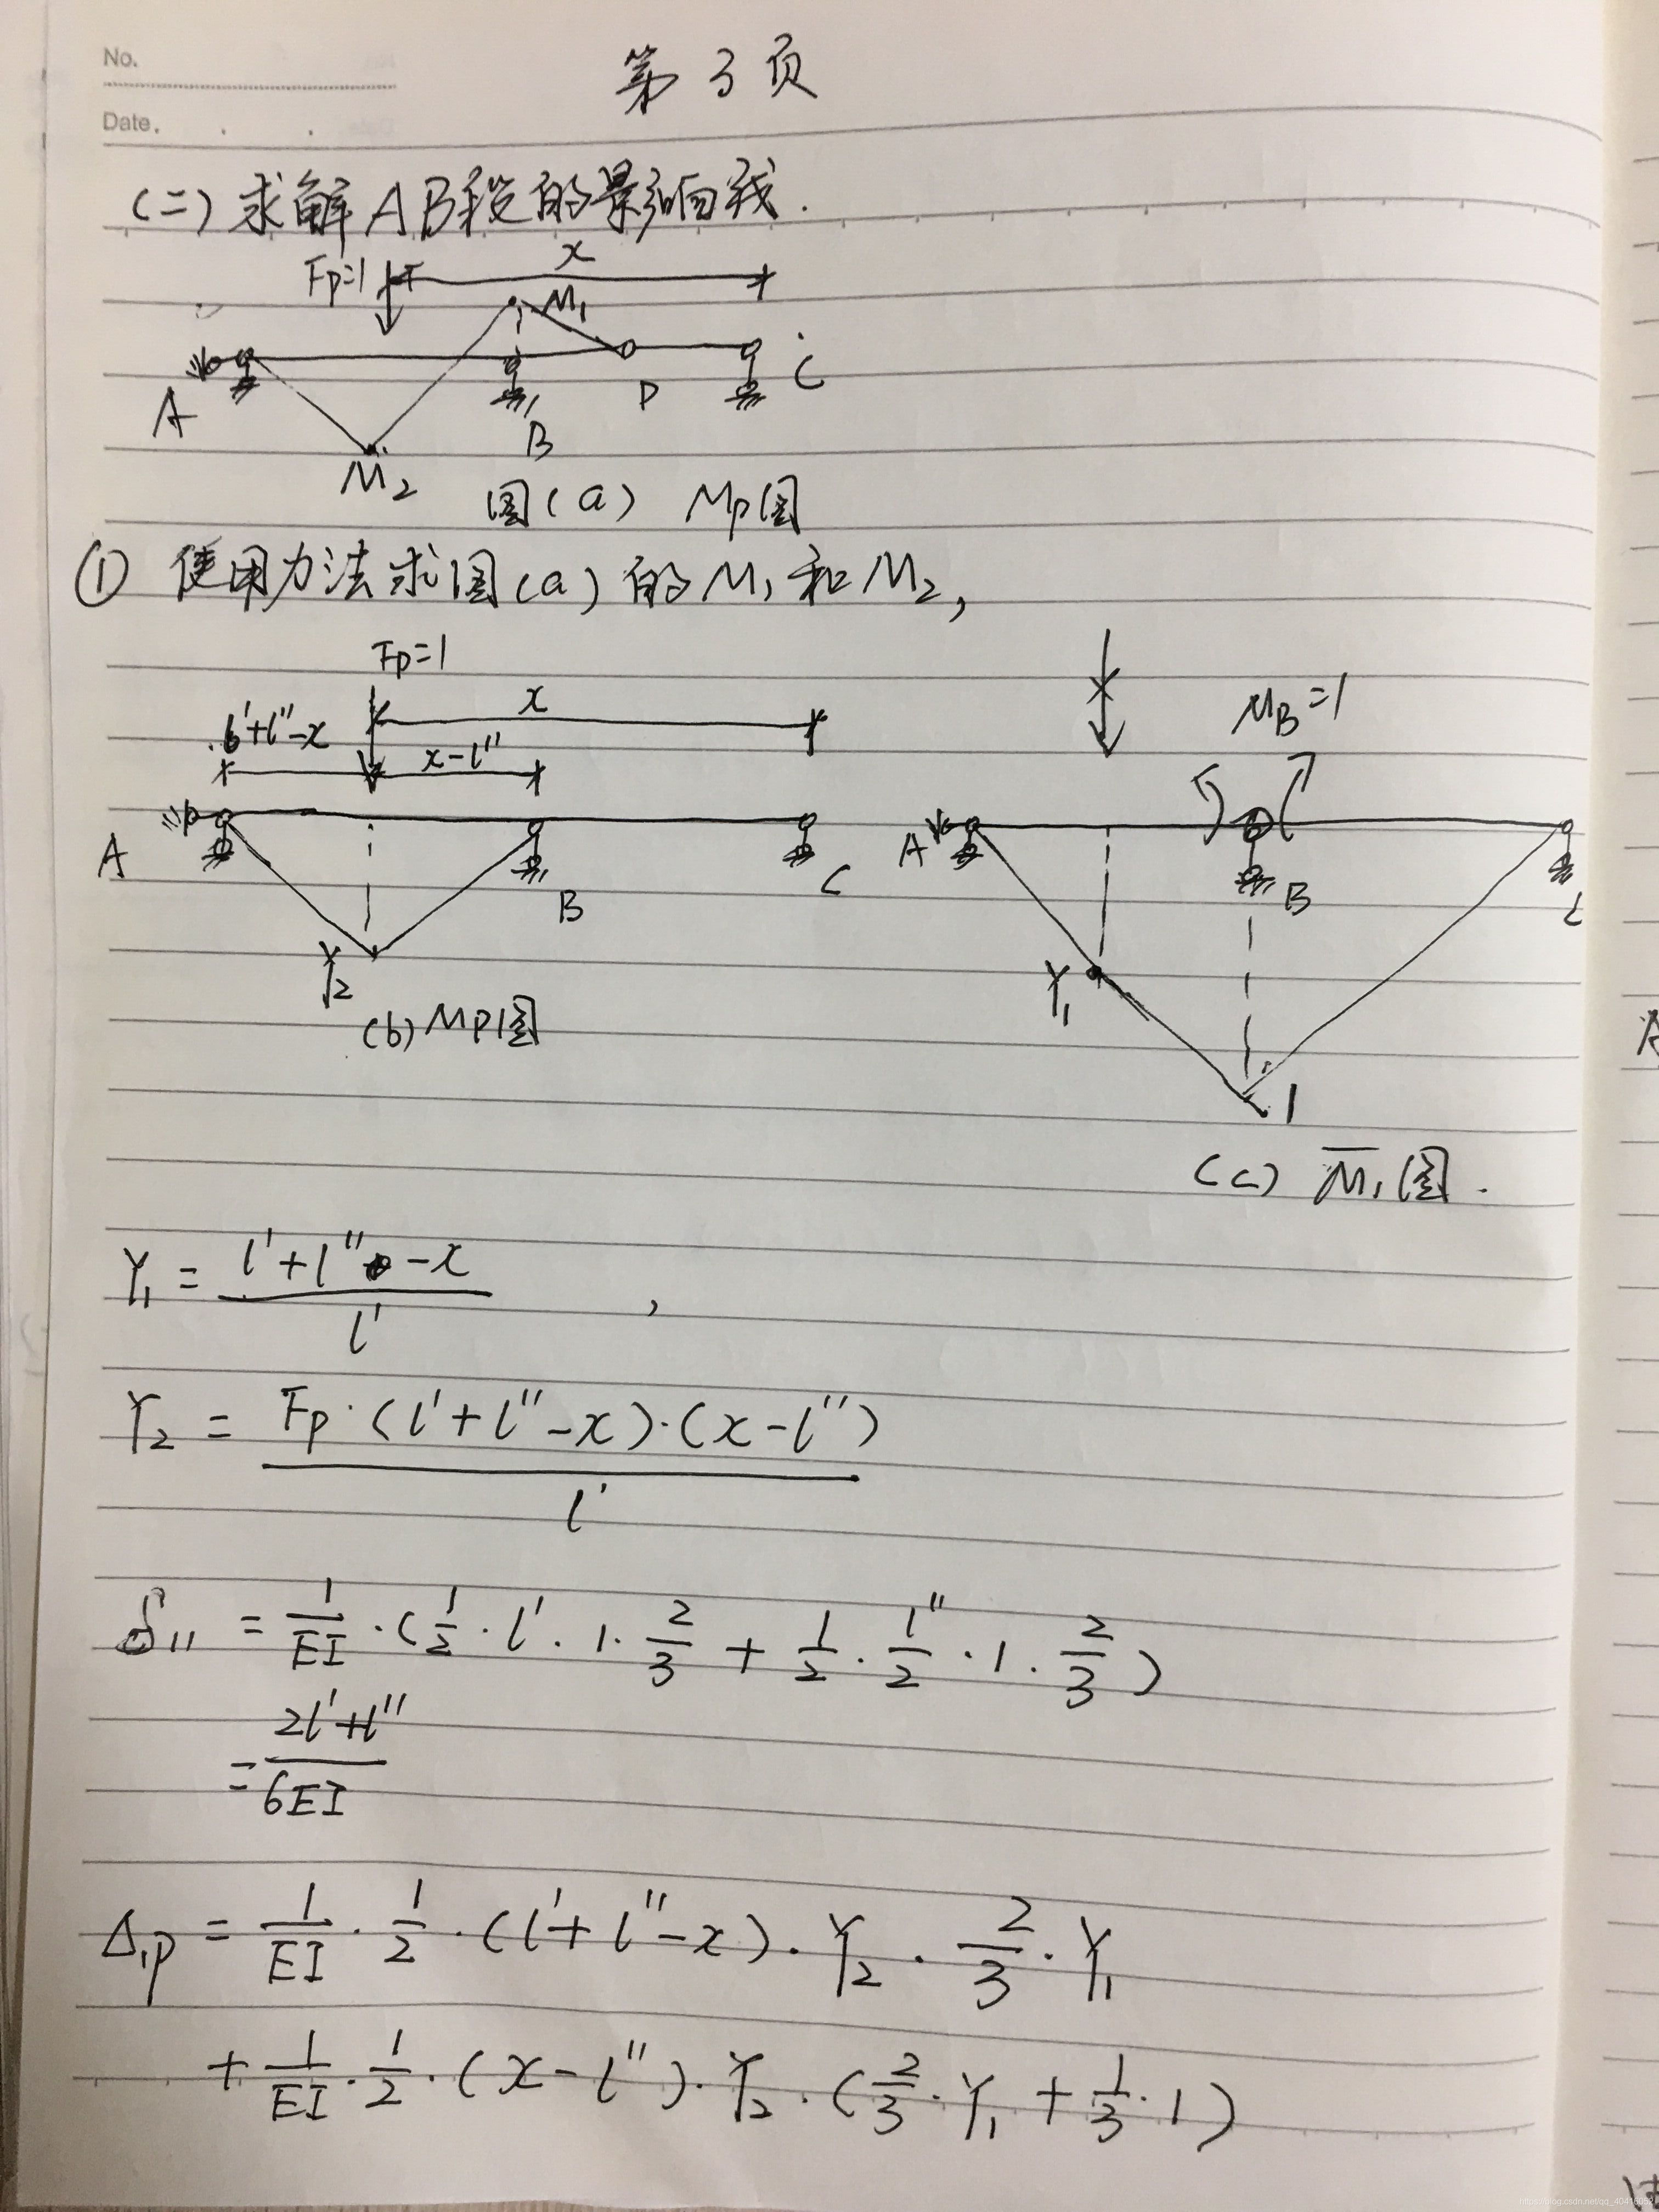 No.
第3页
Date.
(二)求解AB段的影响线.
Fp=1
x
M₁
A
B
D
C
M₂
图(a) Mp图
① 使用力法求图(a)的M₁和M₂,
Fp=1
x
l'+l''-x
x-l''
M_B=1
A
B
C
A
B
C
Y₂
Y₁
1
(b) Mp图
(c) M̅₁图.
Y₁ = (l'+l''-x)/l' ,
Y₂ = Fp·(l'+l''-x)·(x-l'')/l'
δ₁₁ = 1/EI·(1/2·l'·1·2/3 + 1/2·l''/2·1·2/3)
= (2l'+l'')/6EI
Δ₁p = 1/EI·1/2·(l'+l''-x)·Y₂·2/3·Y₁
+ 1/EI·1/2·(x-l'')·Y₂·(2/3·Y₁+1/3·1)